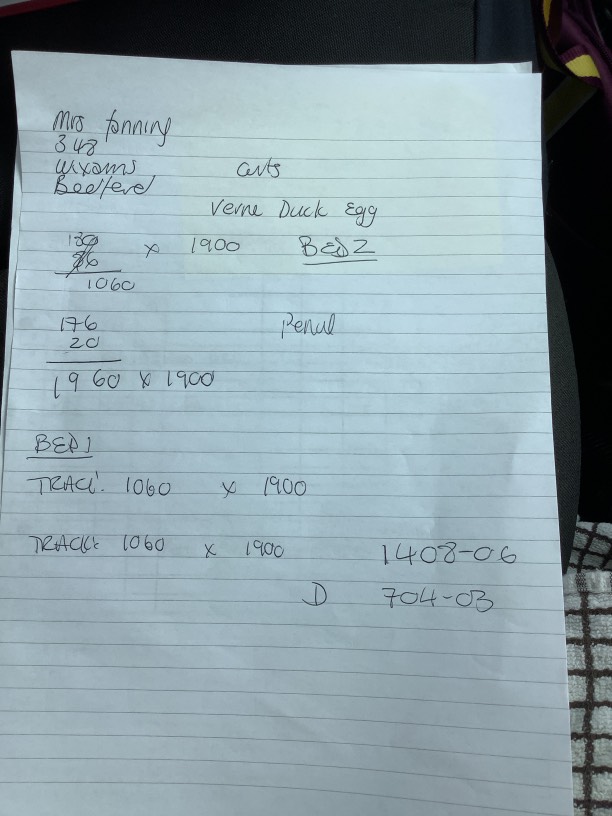 Mrs Fanning
348
Wixams
Bedford
Verne Duck Egg
x 1900 BED 2
1060
176
20
1960 x 1900
BED 1
TRACK: 1060 x 1900
TRACK: 1060 x 1900
1408-06
D 704-03